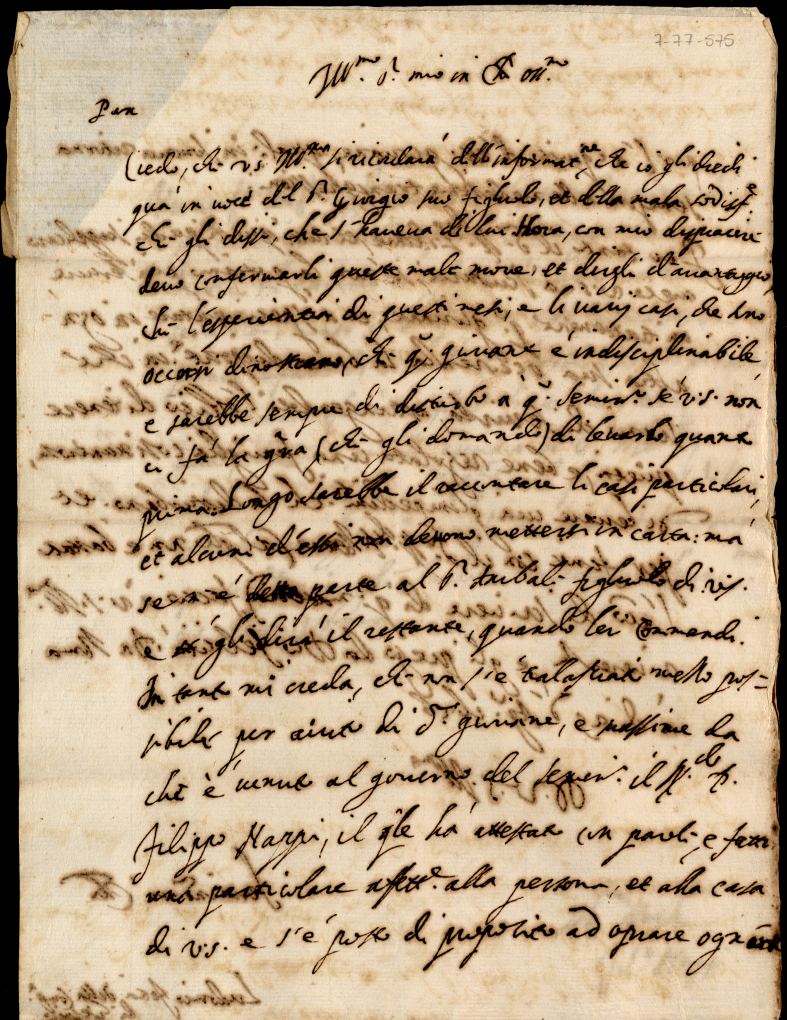 7-77-575
Ill.mo S.r mio in Xpo oss.mo
Pax
Credo, che v.s. Ill.ma si ricordarà dell'informat.ne, che io gli diedi
quà in voce del S.r Giorgio suo figliuolo, et della mala sodisf.e
che gli dissi, che s'haveva di lui Hora, con mio dispiacere
devo confermarli queste male nuove, et dirgli d'avantaggio
che l'esperientia di questi mesi, e li varij casi, che sono
occorsi dimostrano, che q.o giovane è indisciplinabile
e sarebbe sempre di disturbo a q.o Semin.o se v.s. non
ci fà la gra (che gli domando) di levarlo quanto
prima. Longo sarebbe il raccontare li casi particolari,
et alcuni d'essi non devono mettersi in carta: ma
se n'è detta parte al S.r Anibal figliuolo di v.s.
e gli dirà il restante, quando lei commandi.
In tanto mi creda, che non s'è tralasciato mezzo pos=
sibile per aiuto di d.o giovane, e massime da
che è venuto al governo del Semin.o il M.to R.do P.
Filippo Nappi, il qle hà attestato con parole, e fatti
una particolare affett.e alla persona, et alla casa
di v.s. e s'è posto di proposito ad oprare ogni